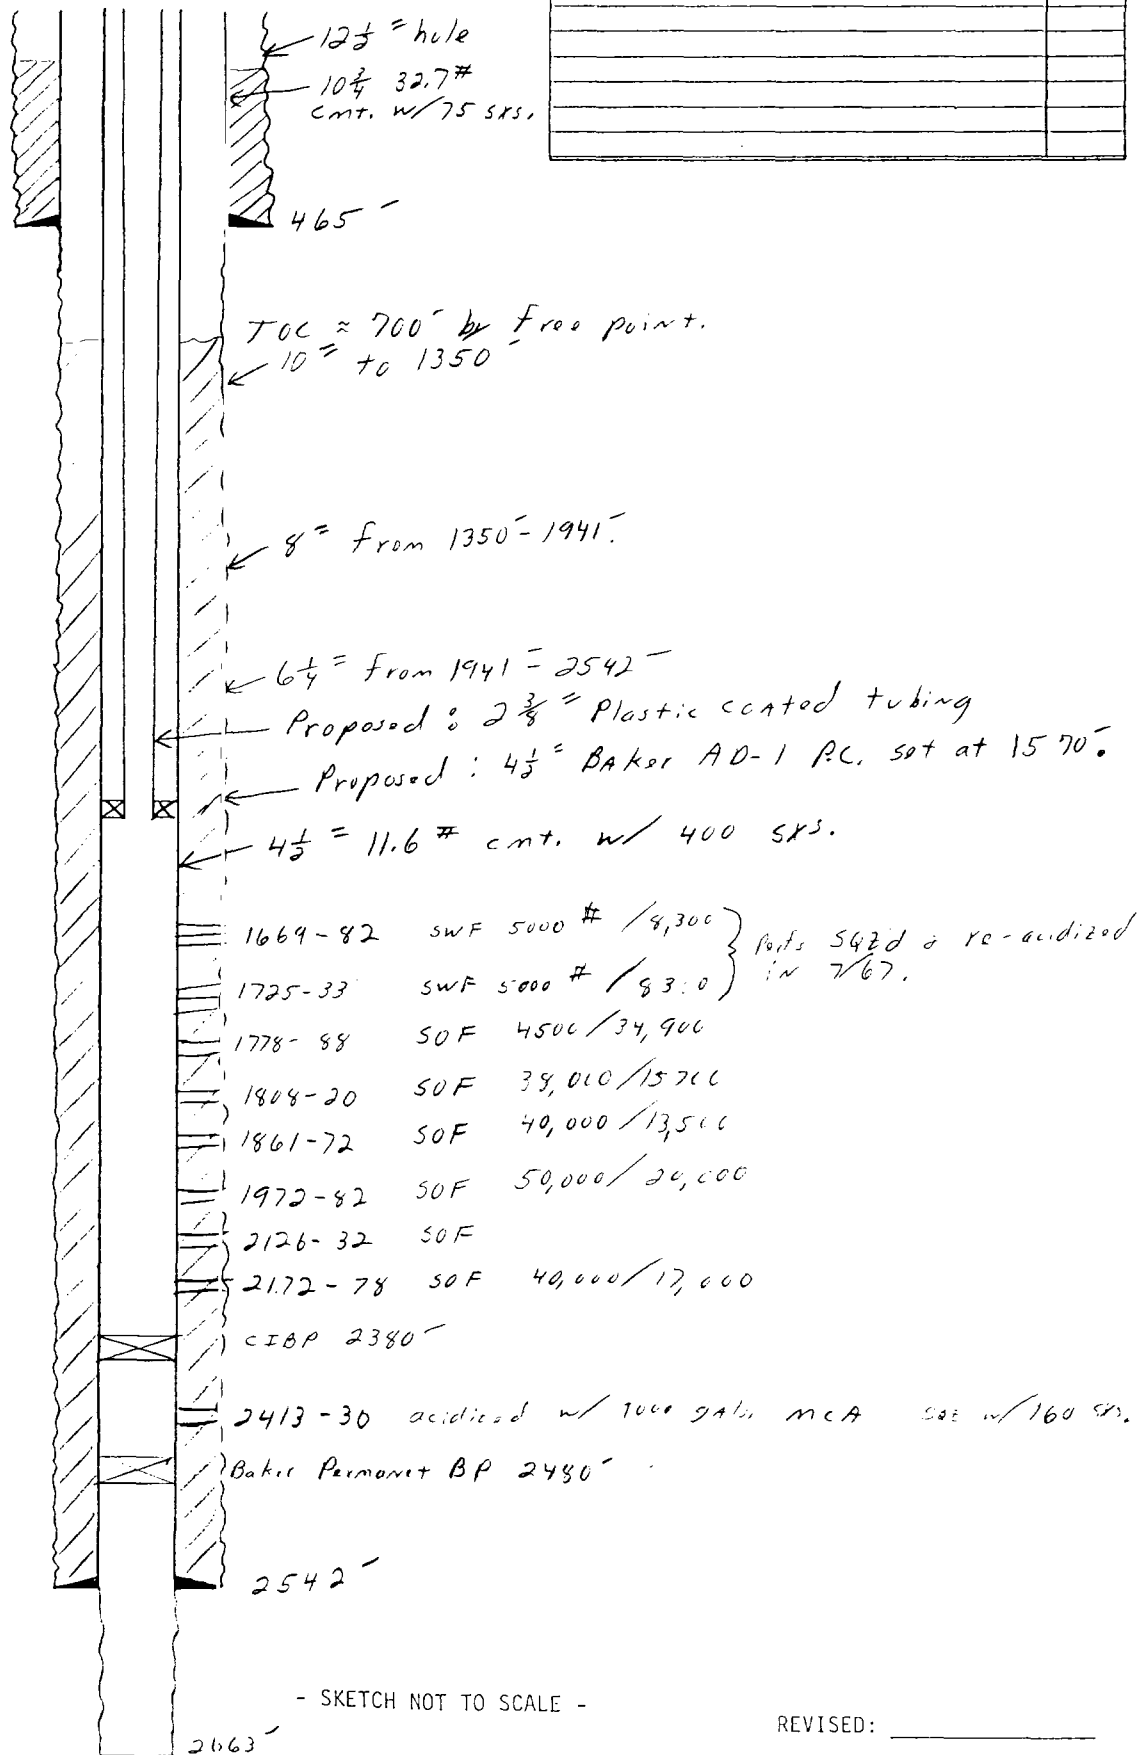 12½" hole
10¾ 32.7#
cmt. w/75 sxs.
465'
TOC ≈ 700' by free point.
10" to 1350'
8" from 1350'-1941'.
6¼" from 1941'-2542'
Proposed: 2⅜" Plastic coated tubing
Proposed: 4½" Baker AD-1 P.C. set at 1570'.
4½" 11.6# cmt. w/ 400 sxs.
1669-82 SWF 5000# /8,300
Perfs sqz'd & re-acidized
in 7/67.
1725-33 SWF 5000# /
1778-88 SOF 4500/34,900
1808-20 SOF
1861-72 SOF 40,000/13,500
1972-82 SOF 50,000/20,000
2126-32 SOF
2172-78 SOF 40,000/17,000
CIBP 2380'
2413-30 acidized w/ gals. MCA sqz w/160 sxs.
Baker Permanet BP 2480'
2542'
- SKETCH NOT TO SCALE -
REVISED:
2663'